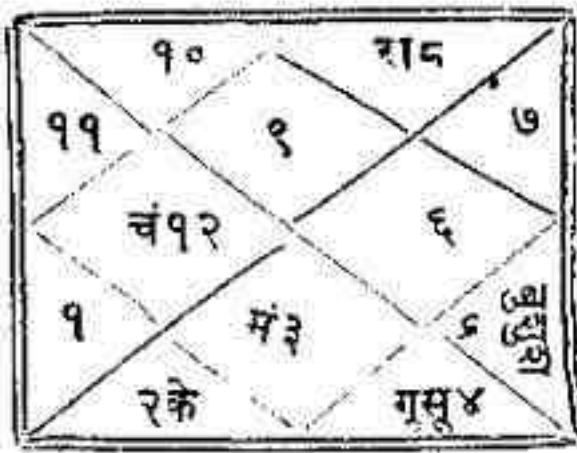 १० रा८
११ ९ ७
चं१२ ६
१ मं३
२के गुसू४